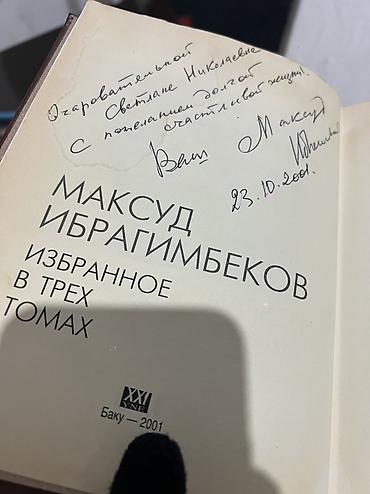 Очаровательной
Светлане Николаевне
с пожеланием долгой
счастливой жизни!
Ваш Максуд
23.10.2001.
МАКСУД
ИБРАГИМБЕКОВ
ИЗБРАННОЕ
В ТРЕХ
ТОМАХ
XXI
YNE
Баку — 2001